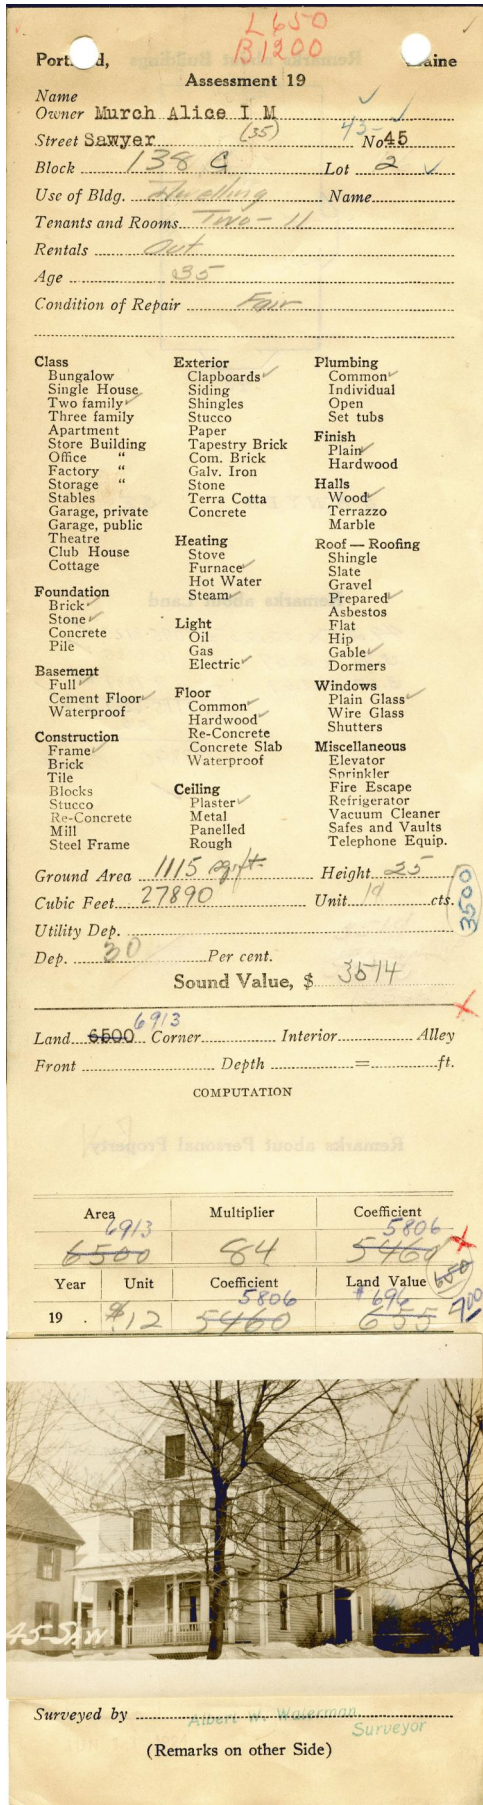 L 650
B 1200
Portl d, aine
Assessment 19
Name
Owner Murch Alice I M
Street Sawyer (35) 43- No 45
Block 138 C Lot 2
Use of Bldg. Dwelling Name
Tenants and Rooms Two - 11
Rentals Out
Age 35
Condition of Repair Fair
Class
Bungalow
Single House
Two family ✓
Three family
Apartment
Store Building
Office "
Factory "
Storage "
Stables
Garage, private
Garage, public
Theatre
Club House
Cottage
Foundation
Brick ✓
Stone ✓
Concrete
Pile
Basement
Full ✓
Cement Floor ✓
Waterproof
Construction
Frame ✓
Brick
Tile
Blocks
Stucco
Re-Concrete
Mill
Steel Frame
Exterior
Clapboards ✓
Siding
Shingles
Stucco
Paper
Tapestry Brick
Com. Brick
Galv. Iron
Stone
Terra Cotta
Concrete
Heating
Stove
Furnace ✓
Hot Water
Steam ✓
Light
Oil
Gas
Electric ✓
Floor
Common ✓
Hardwood ✓
Re-Concrete
Concrete Slab
Waterproof
Ceiling
Plaster ✓
Metal
Panelled
Rough
Plumbing
Common ✓
Individual
Open
Set tubs
Finish
Plain ✓
Hardwood
Halls
Wood ✓
Terrazzo
Marble
Roof — Roofing
Shingle
Slate
Gravel
Prepared ✓
Asbestos
Flat
Hip
Gable ✓
Dormers
Windows
Plain Glass ✓
Wire Glass
Shutters
Miscellaneous
Elevator
Sprinkler
Fire Escape
Refrigerator
Vacuum Cleaner
Safes and Vaults
Telephone Equip.
Ground Area 1115 sq. ft. Height 25
Cubic Feet 27890 Unit 19 cts.
3500
Utility Dep.
Dep. 30 Per cent.
Sound Value, $ 3514
6913
Land 6500 Corner Interior Alley
Front Depth = ft.
COMPUTATION
Area Multiplier Coefficient
6913 5806
6500 84 5460
Year Unit Coefficient Land Value 650
5806 $696
19 . $.12 5460 655 700
45-Saw.
Surveyed by Albert W. Waterman
Surveyor
(Remarks on other Side)